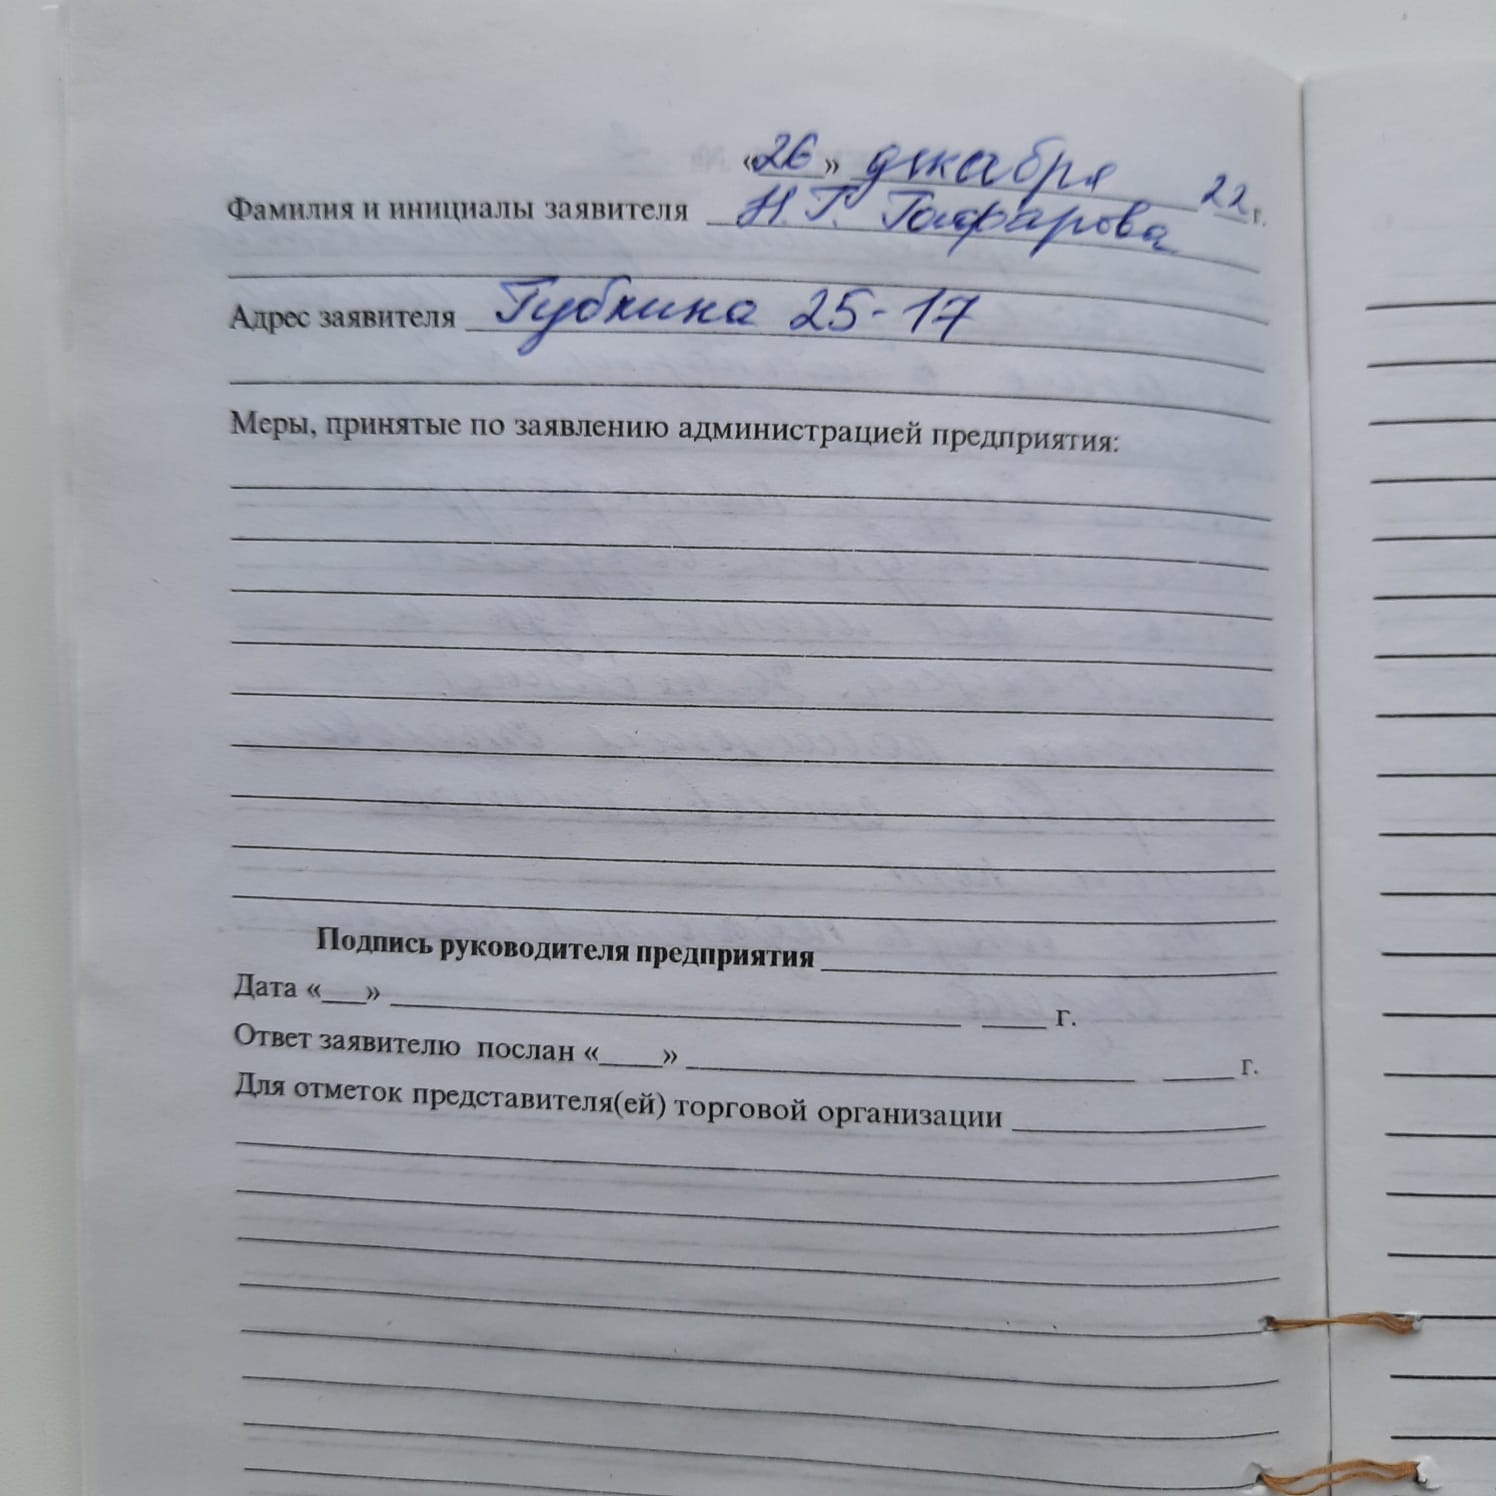 «26» декабря 22 г.
Фамилия и инициалы заявителя Н.Г. Гафарова
Адрес заявителя Губкина 25-17
Меры, принятые по заявлению администрацией предприятия:
Подпись руководителя предприятия
Дата «___» ___ г.
Ответ заявителю послан «____» ____ г.
Для отметок представителя(ей) торговой организации